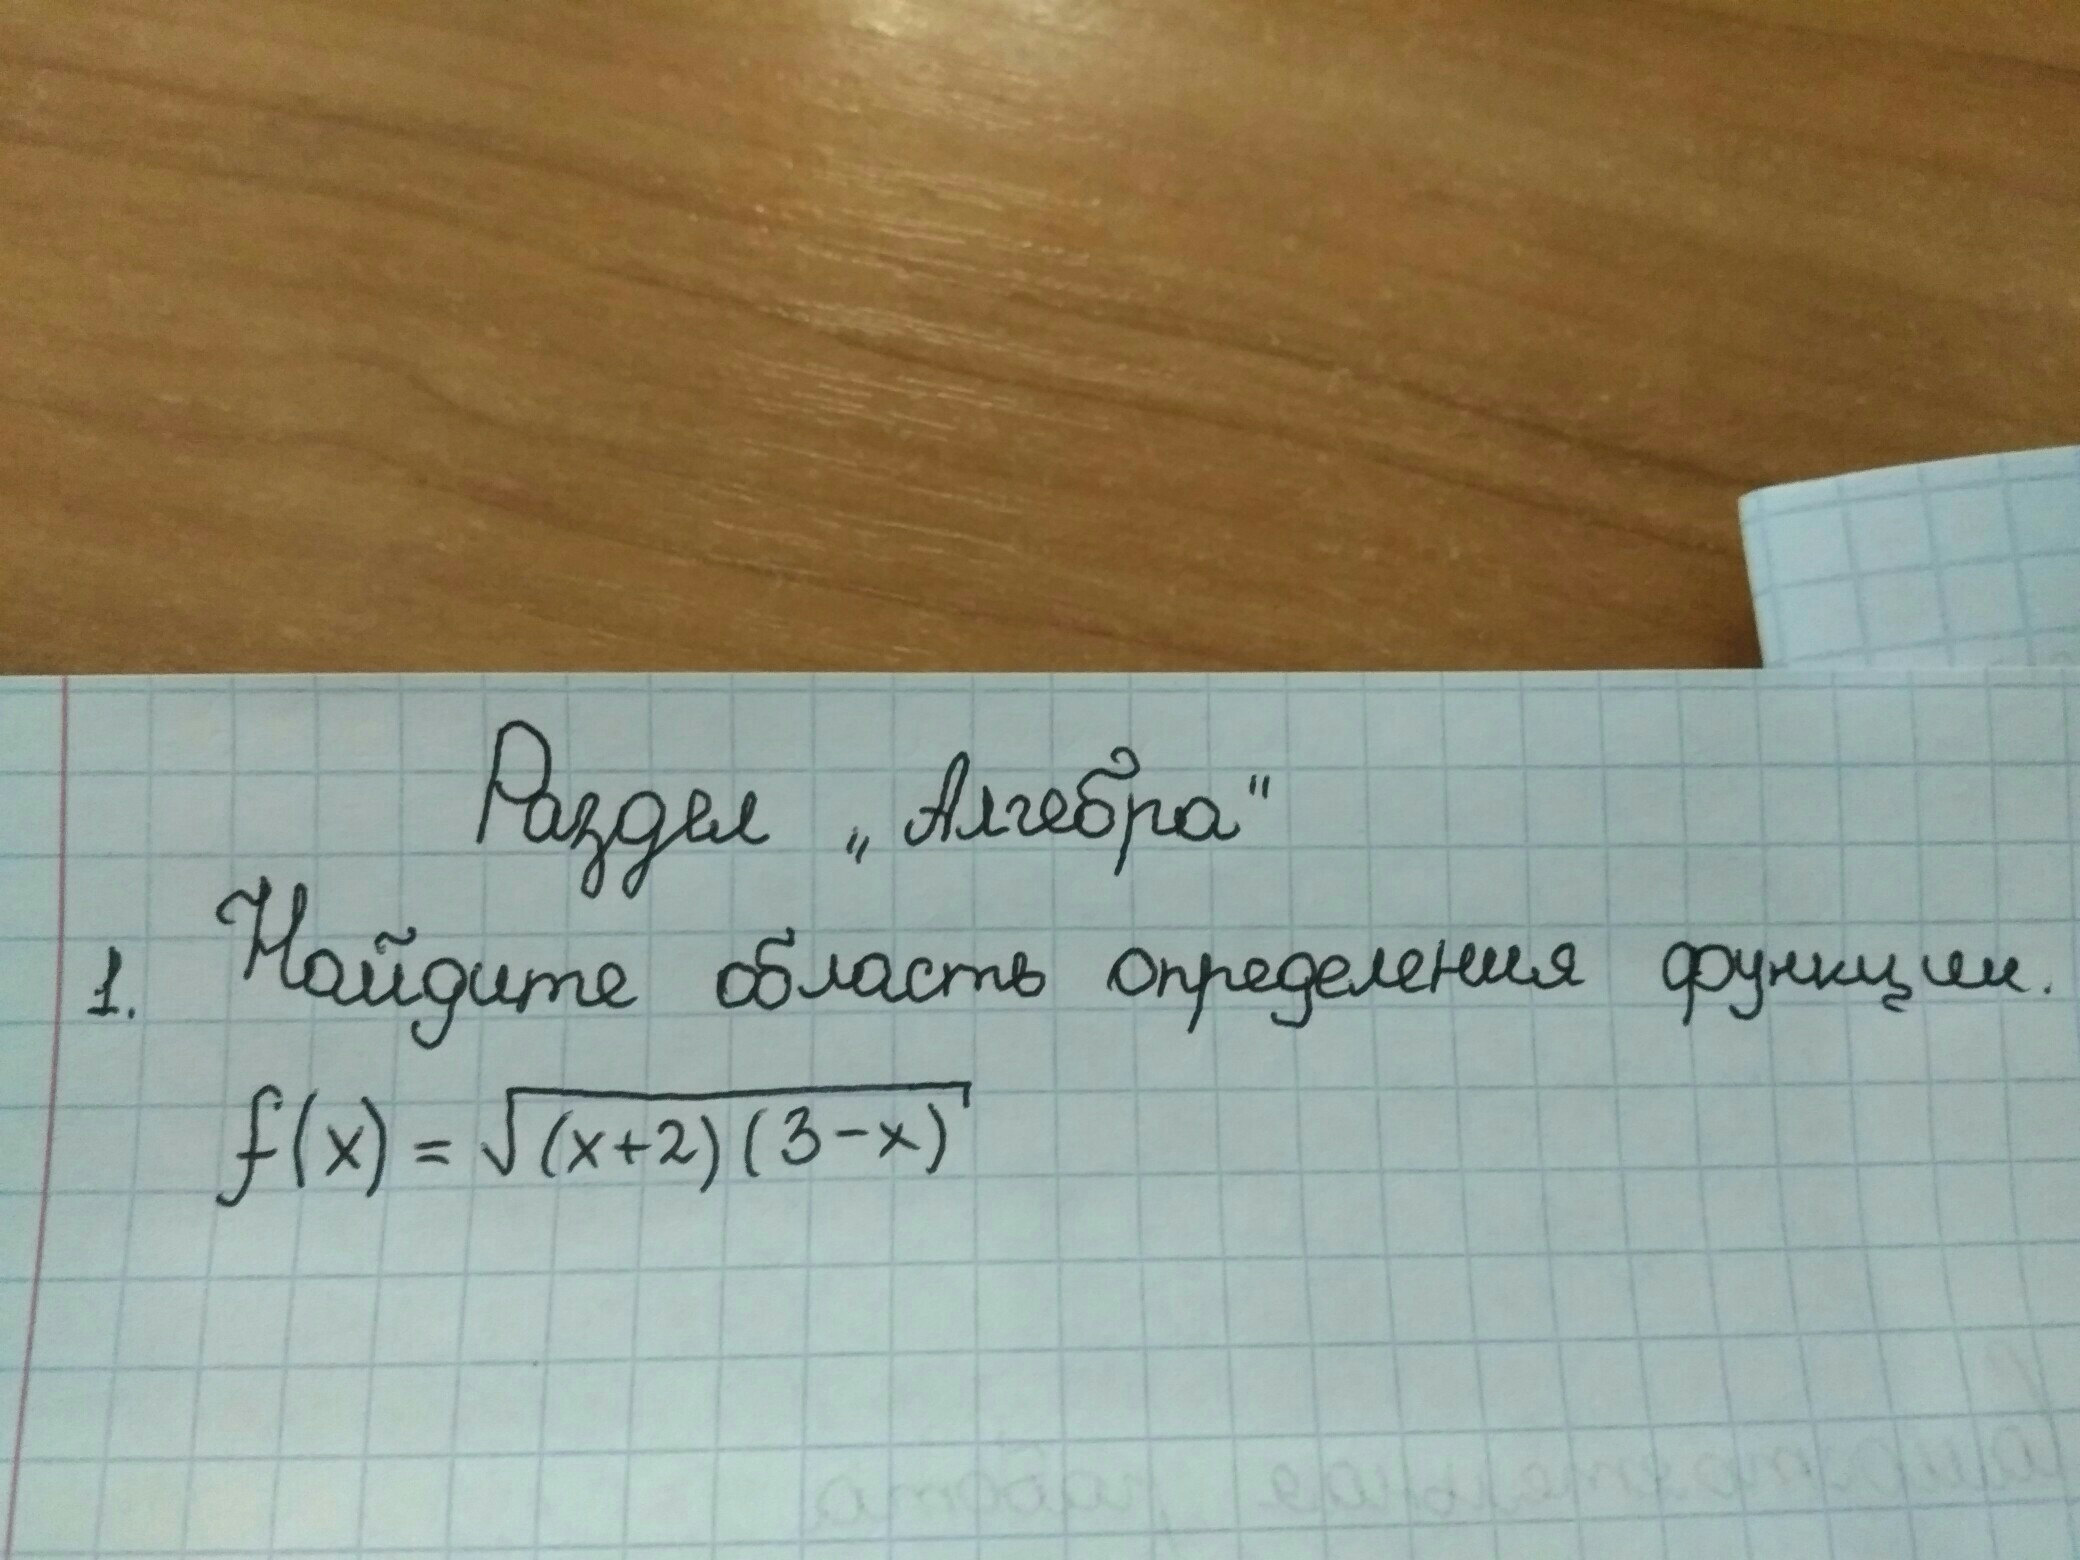 Раздел „Алгебра“
1. Найдите область определения функции.
f(x) = √(x+2)(3-x)
работа